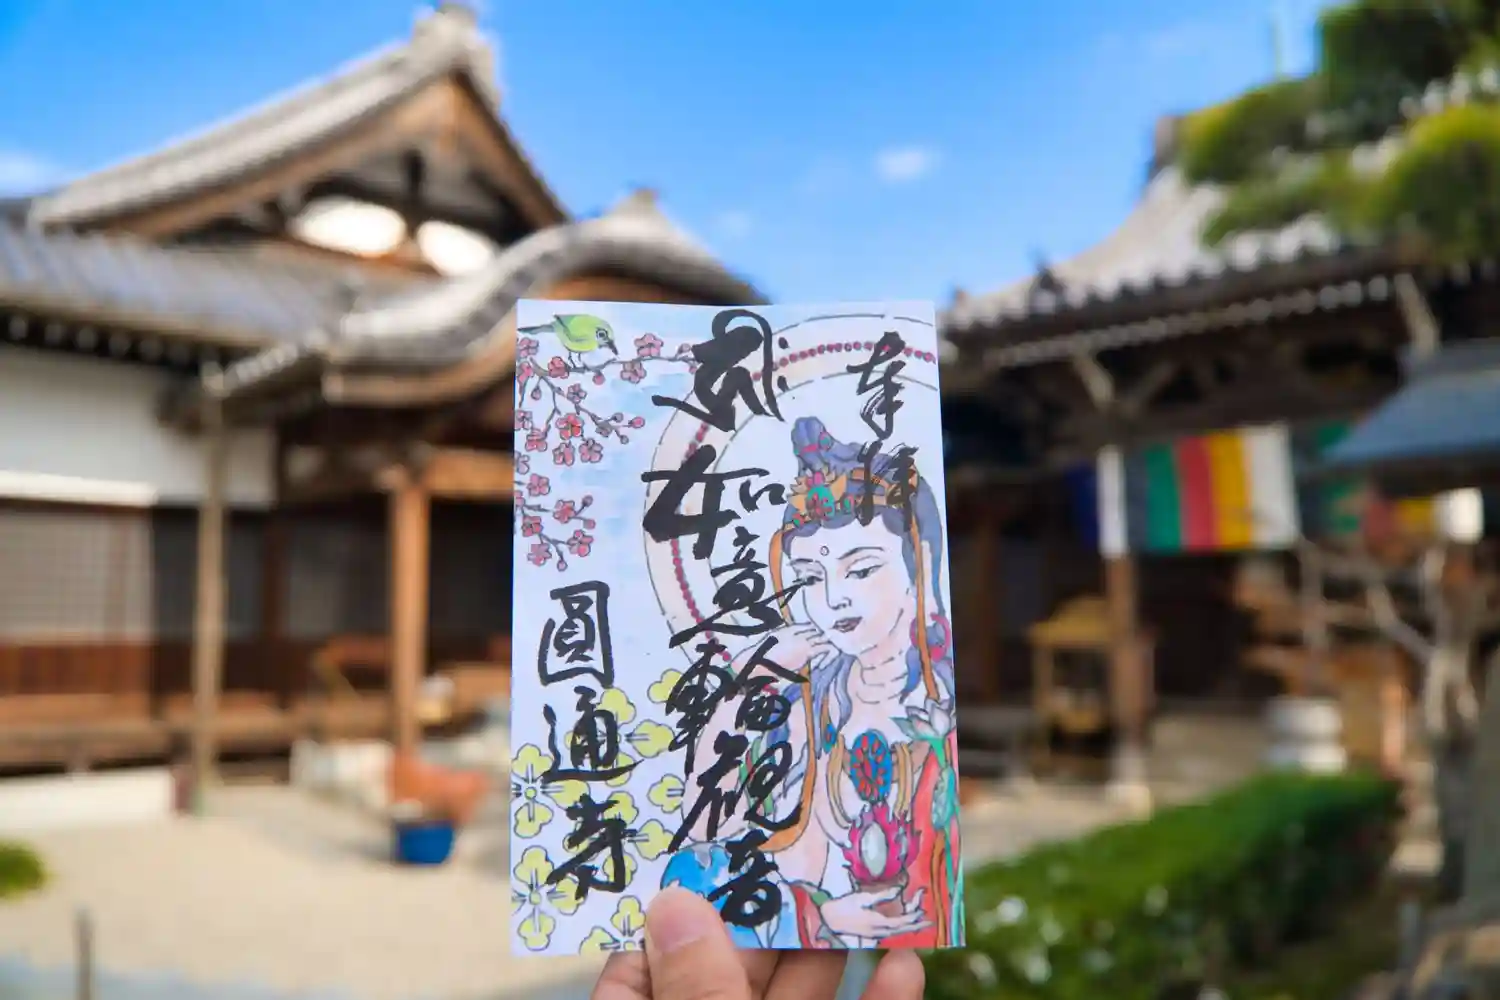 奉拝
如意輪觀音
圓通寺